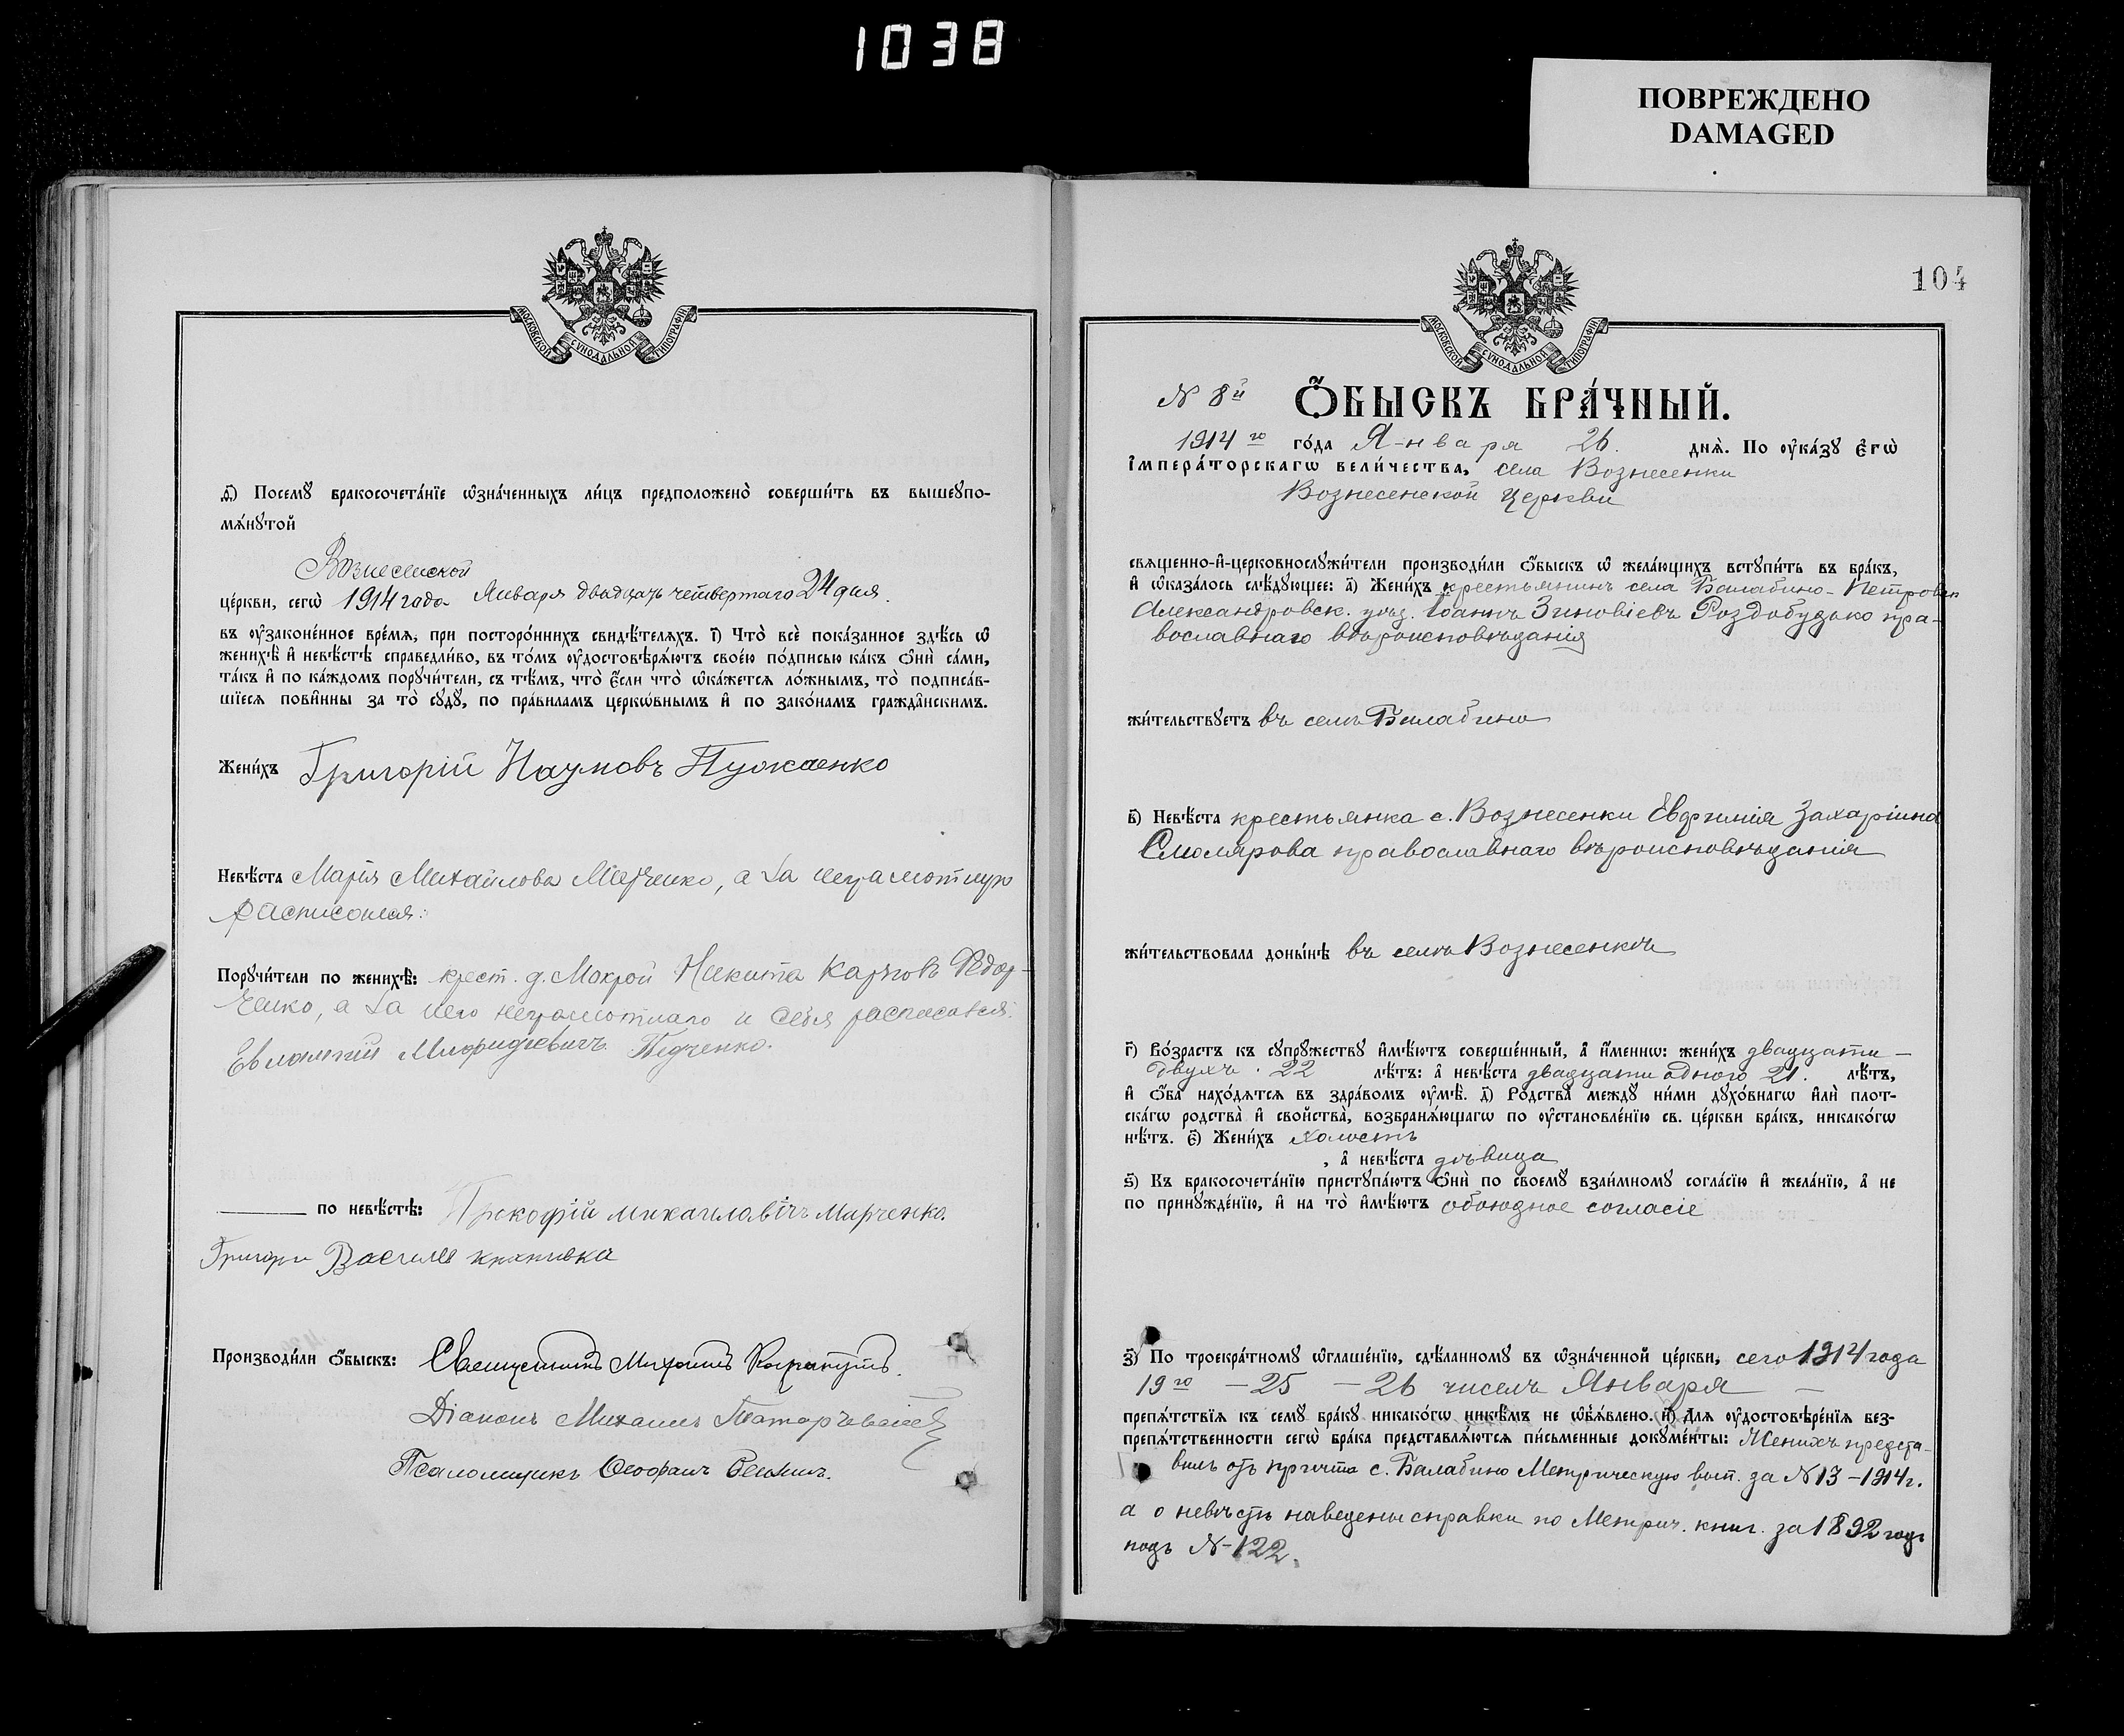 1038
ПОВРЕЖДЕНО
DAMAGED
МОСКОВСКОЙ СѴНОДАЛЬНОЙ ТИПОГРАФІИ
ѳ҃) Посемꙋ бракосочета́нїе ѡ҆зна́ченныхъ ли́цъ предположено̀ соверши́ть въ вышеꙋпо-
мѧ́нꙋтой
Вознесенской
це́ркви, сегѡ̀ 1914 года Января двадцать четвертаго 24 дня.
въ оу҆законе́нное вре́мѧ, при посторо́ннихъ свидѣ́телѧхъ. і҃) Что̀ всѐ пока́занное здѣ́сь ѡ҆
женихѣ̀ и҆ невѣ́стѣ справедли́во, въ то́мъ оу҆достовѣрѧ́ютъ свое́ю по́дписью ка́къ ѻ҆нѝ са́ми,
та́къ и҆ по ка́ждомъ порꙋчи́тели, съ тѣ́мъ, что̀ є҆́сли что̀ ѡ҆ка́жетсѧ ло́жнымъ, то̀ подписа́в-
шїесѧ пови́нны за то̀ сꙋдꙋ̀, по пра́виламъ церкѡ́внымъ и҆ по зако́намъ гражда́нскимъ.
Жени́хъ Григорій Наумовъ Пужаенко
Невѣ́ста Марія Михайлова Марченко, а за неграмотную
расписался:
Порꙋчи́тели по женихѣ̀: крест. д. Мокрой Никита Карповъ Федор-
ченко, а за него неграмотнаго и себя расписался:
Евлампій Педченко.
по невѣ́стѣ: Прокофій михаилавічъ марченко.
Григори Василев крапивка
Производи́ли ѻ҆́быскъ: Священникъ Михаилъ
Діаконъ Михаилъ
Псаломщикъ Ѳеофанъ
104
МОСКОВСКОЙ СѴНОДАЛЬНОЙ ТИПОГРАФІИ
N 8й ѺБЫСКЪ БРА́ЧНЫЙ.
1914го го́да Января 26. днѧ̀. По оу҆ка́зꙋ є҆гѡ̀
і҆мпера́торскагѡ вели́чества, села Вознесенки
Вознесенской церкви
свѧщенно-и҆-церковнослꙋжи́тели производи́ли ѻ҆́быскъ ѡ҆ жела́ющихъ встꙋпи́ть въ бра́къ,
и҆ ѡ҆каза́лось слѣ́дꙋющее: а҃) Жени́хъ крестьянинъ села Балабино-Петровск
Александровск. уѣзд. Іоаннъ Зиновіевъ Роздобудько пра-
вославнаго вѣроисповѣданія
жи́тельствꙋетъ въ селѣ Балабино
в҃) Невѣ́ста крестьянка с. Вознесенки Евфимія Захаріина
Смолярова православнаго вѣроисповѣданія
жи́тельствовала доны́нѣ въ селѣ Вознесенкѣ
г҃) Во́зрастъ къ сꙋпрꙋжествꙋ и҆мѣ́ютъ соверше́нный, а҆ и҆́меннѡ: жени́хъ двадцати-
двухъ. 22 лѣ́тъ: а҆ невѣ́ста двадцати одного 21. лѣ́тъ,
и҆ ѻ҆́ба нахо́дѧтсѧ въ здра́вомъ оу҆мѣ̀. д҃) Родства̀ междꙋ ни́ми дꙋхо́внагѡ и҆лѝ плот-
ска́гѡ родства̀ и҆ сво́йства̀, возбранѧ́ющагѡ по оу҆становле́нїю св. це́ркви бра́къ, никако́гѡ
нѣ́тъ. є҃) Жени́хъ холостъ
, а҆ невѣ́ста дѣвица
ѕ҃) Къ бракосочета́нїю пристꙋпа́ютъ ѻ҆нѝ по своемꙋ̀ взаи́мномꙋ согла́сїю и҆ жела́нїю, а҆ не
по принꙋжде́нїю, и҆ на то̀ и҆мѣ́ютъ обоюдное согласіе
з҃) По троекра́тномꙋ ѡ҆глаше́нїю, сдѣ́ланномꙋ въ ѡ҆зна́ченной це́ркви, сего 1914 года
19го - 25 - 26 числъ Января -
препѧ́тствїѧ къ семꙋ̀ бра́кꙋ никако́гѡ никѣ́мъ не ѡ҆б̾ѧ́влено. и҃) Длѧ оу҆достовѣре́нїѧ без-
препѧ́тственности сегѡ̀ бра́ка представлѧ́ютсѧ пи́сьменные докꙋме́нты: Женихъ предста-
вилъ отъ причта с. Балабино Метрическую вып. за N 13 - 1914 г.
а о невѣстѣ наведены справки по Метрич. книг. за 1892 годъ
подъ N-122.